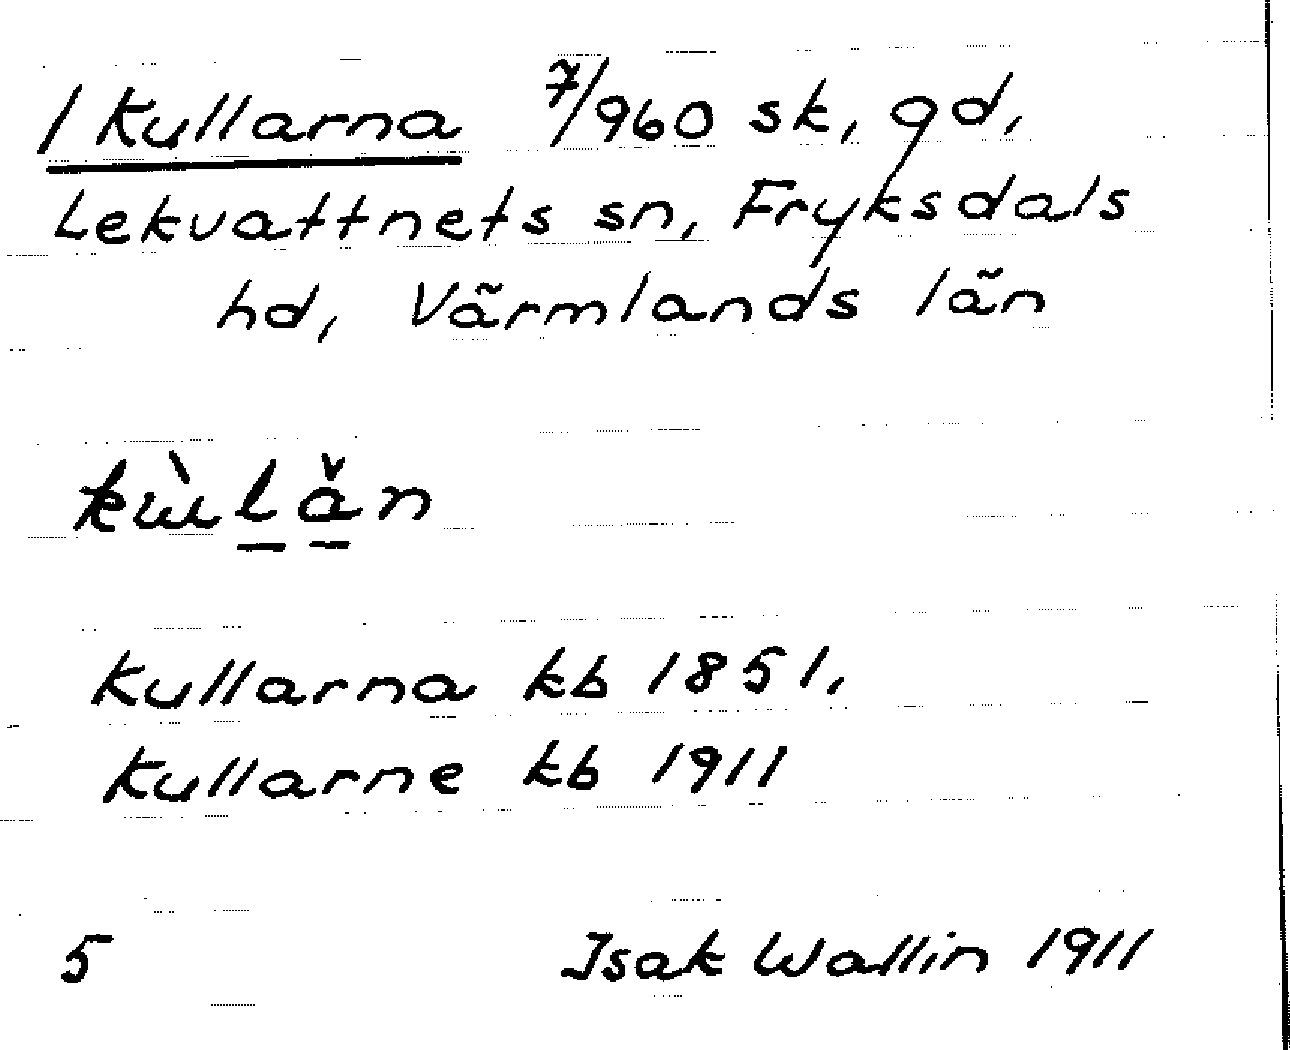 1 Kullarna 7/960 sk, gd,
Lekvattnets sn, Fryksdals
hd, Värmlands län
kùlǎn
Kullarna kb 1851,
Kullarne kb 1911
5 Isak Wallin 1911